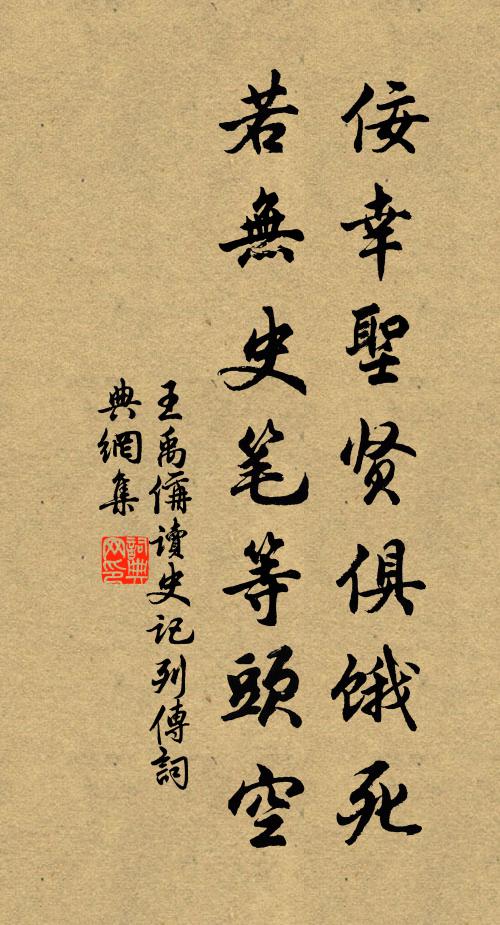 佞幸聖贤俱饿死
若無史笔等頭空
王禹偁讀史记列傳詞
典網集
詞典
网印